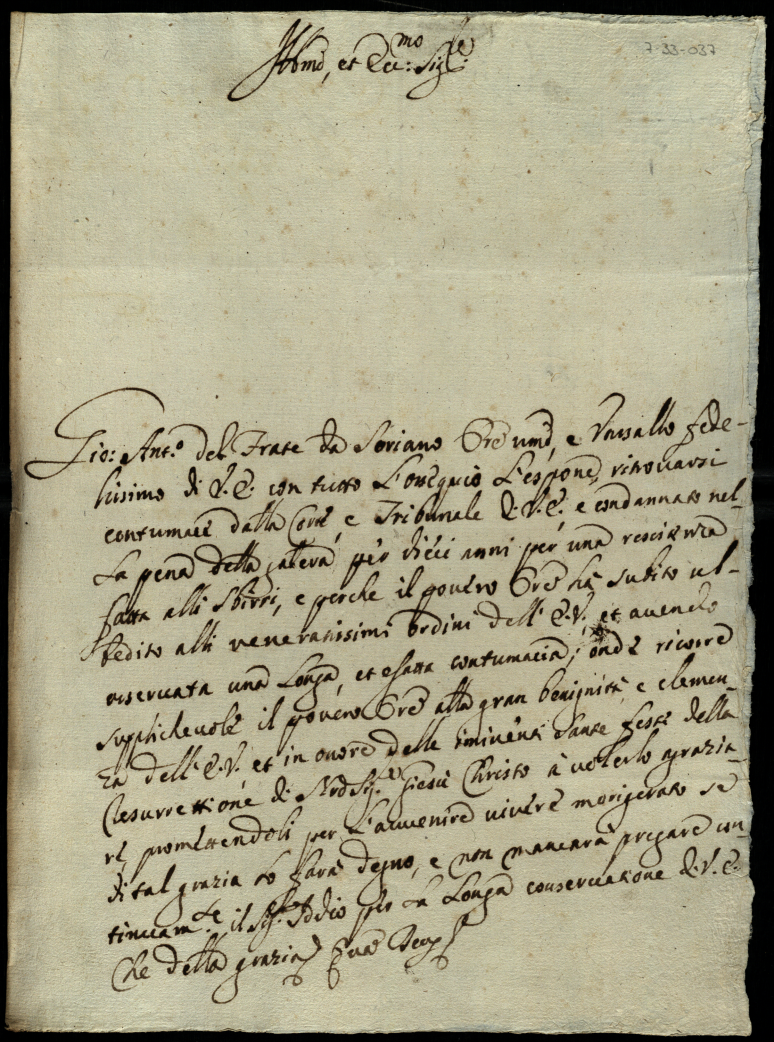 Ill:mo, et Ecc:mo Sig:re
7-33-037
Gio: Ant.o del Frate da Soriano Ore umo, e Vassallo fede-
lissimo di V.E. con tutto l'ossequio l'espone, ritrovarsi
contumace dalla Corte, e Tribunale di V.E., e condannato nel-
la pena della galera per dieci anni per una resistenza
fatta alli Sbirri, e perche il povero Ore hà subito ub-
bedito alli veneratissimi ordini dell'E.V., et avendo
osservata una longa, et esatta contumacia; onde ricorre
supplichevole il povero Ore alla gran benignità, e clemen-
za dell'E.V. et in onore delle iminenti Sante feste della
Resurrettione di Nro Sig.re Giesù Christo à volerlo agrazia-
re, promettendoli per l'avvenire vivere morigerato se
di tal grazia lo farà degno, e non mancarà pregare con-
tinuam.te il Sig.re Iddio per la longa conservatione di V.E.
Che della grazia